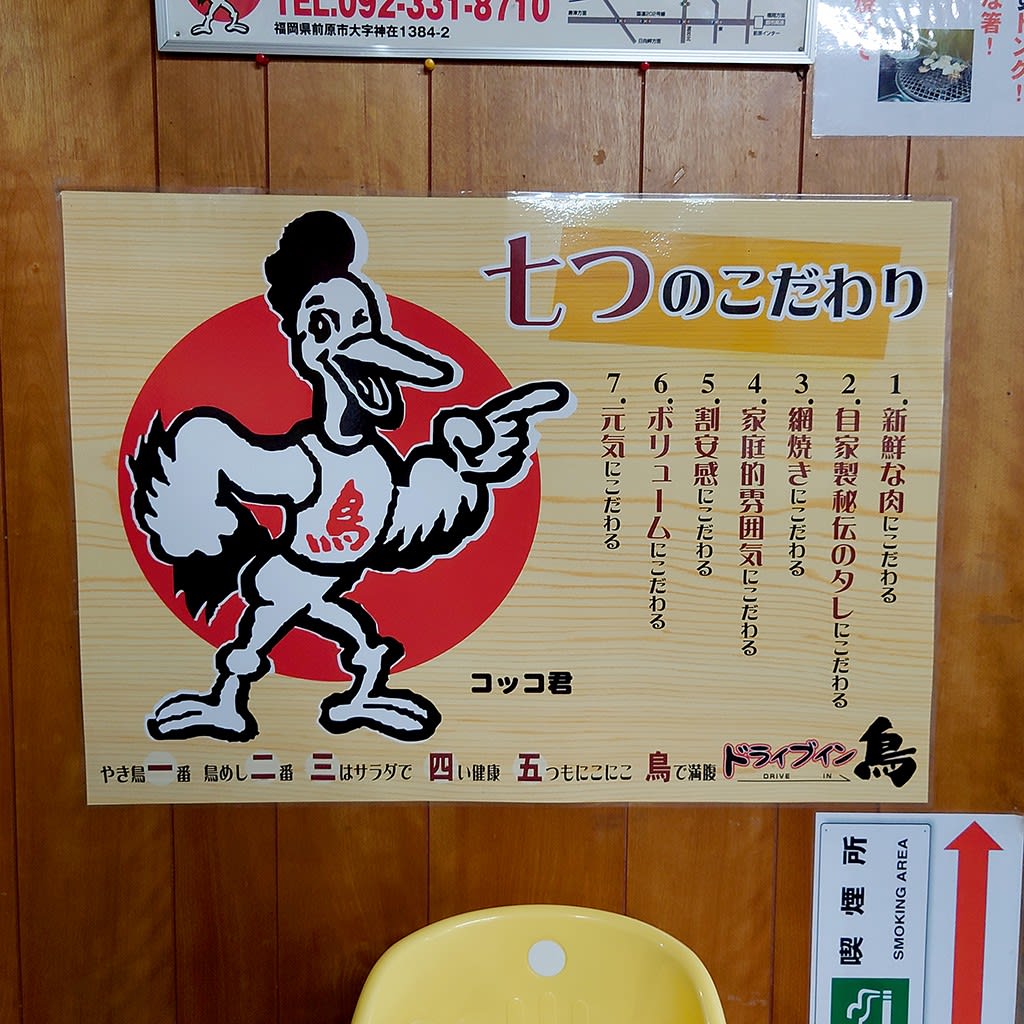 TEL.092-331-8710
福岡県前原市大字神在1384-2
国道202号線
な箸！
トング！
七つのこだわり
1.新鮮な肉にこだわる
2.自家製秘伝のタレにこだわる
3.網焼きにこだわる
4.家庭的雰囲気にこだわる
5.割安感にこだわる
6.ボリュームにこだわる
7.元気にこだわる
鳥
コッコ君
やき鳥一番 鳥めし二番 三はサラダで 四い健康 五つもにこにこ 鳥で満腹
ドライブイン鳥
DRIVE IN
喫煙所
SMOKING AREA